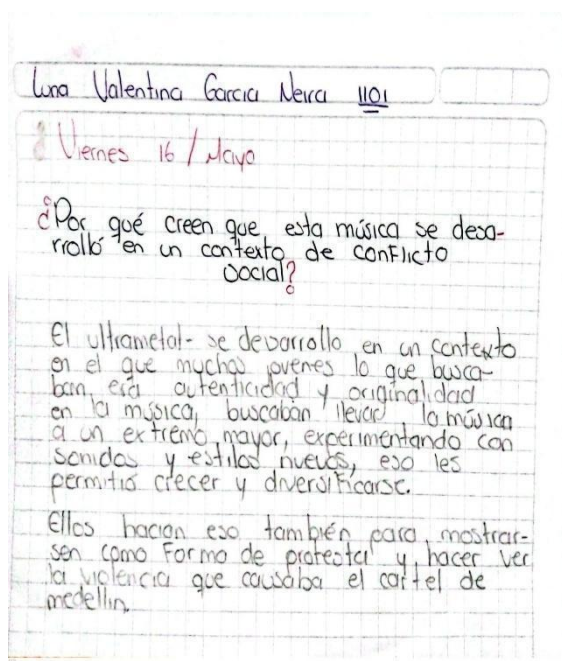 Luna Valentina Garcia Neira 1101
Viernes 16 / Mayo
¿Por qué creen que esta música se desa-
rrolló en un contexto de conflicto
social?
El ultrametal- se devarrollo en un contexto
en el que muchos jovenes lo que busca-
ban, era autenticidad y originalidad
en la música, buscaban llevar la música
a un extremo mayor, experimentando con
sonidos y estilos nuevos, eso les
permitió crecer y diversificarse.
Ellos hacian eso también para mostrar-
sen como forma de protesta y hacer ver
la violencia que causaba el cartel de
medellin.